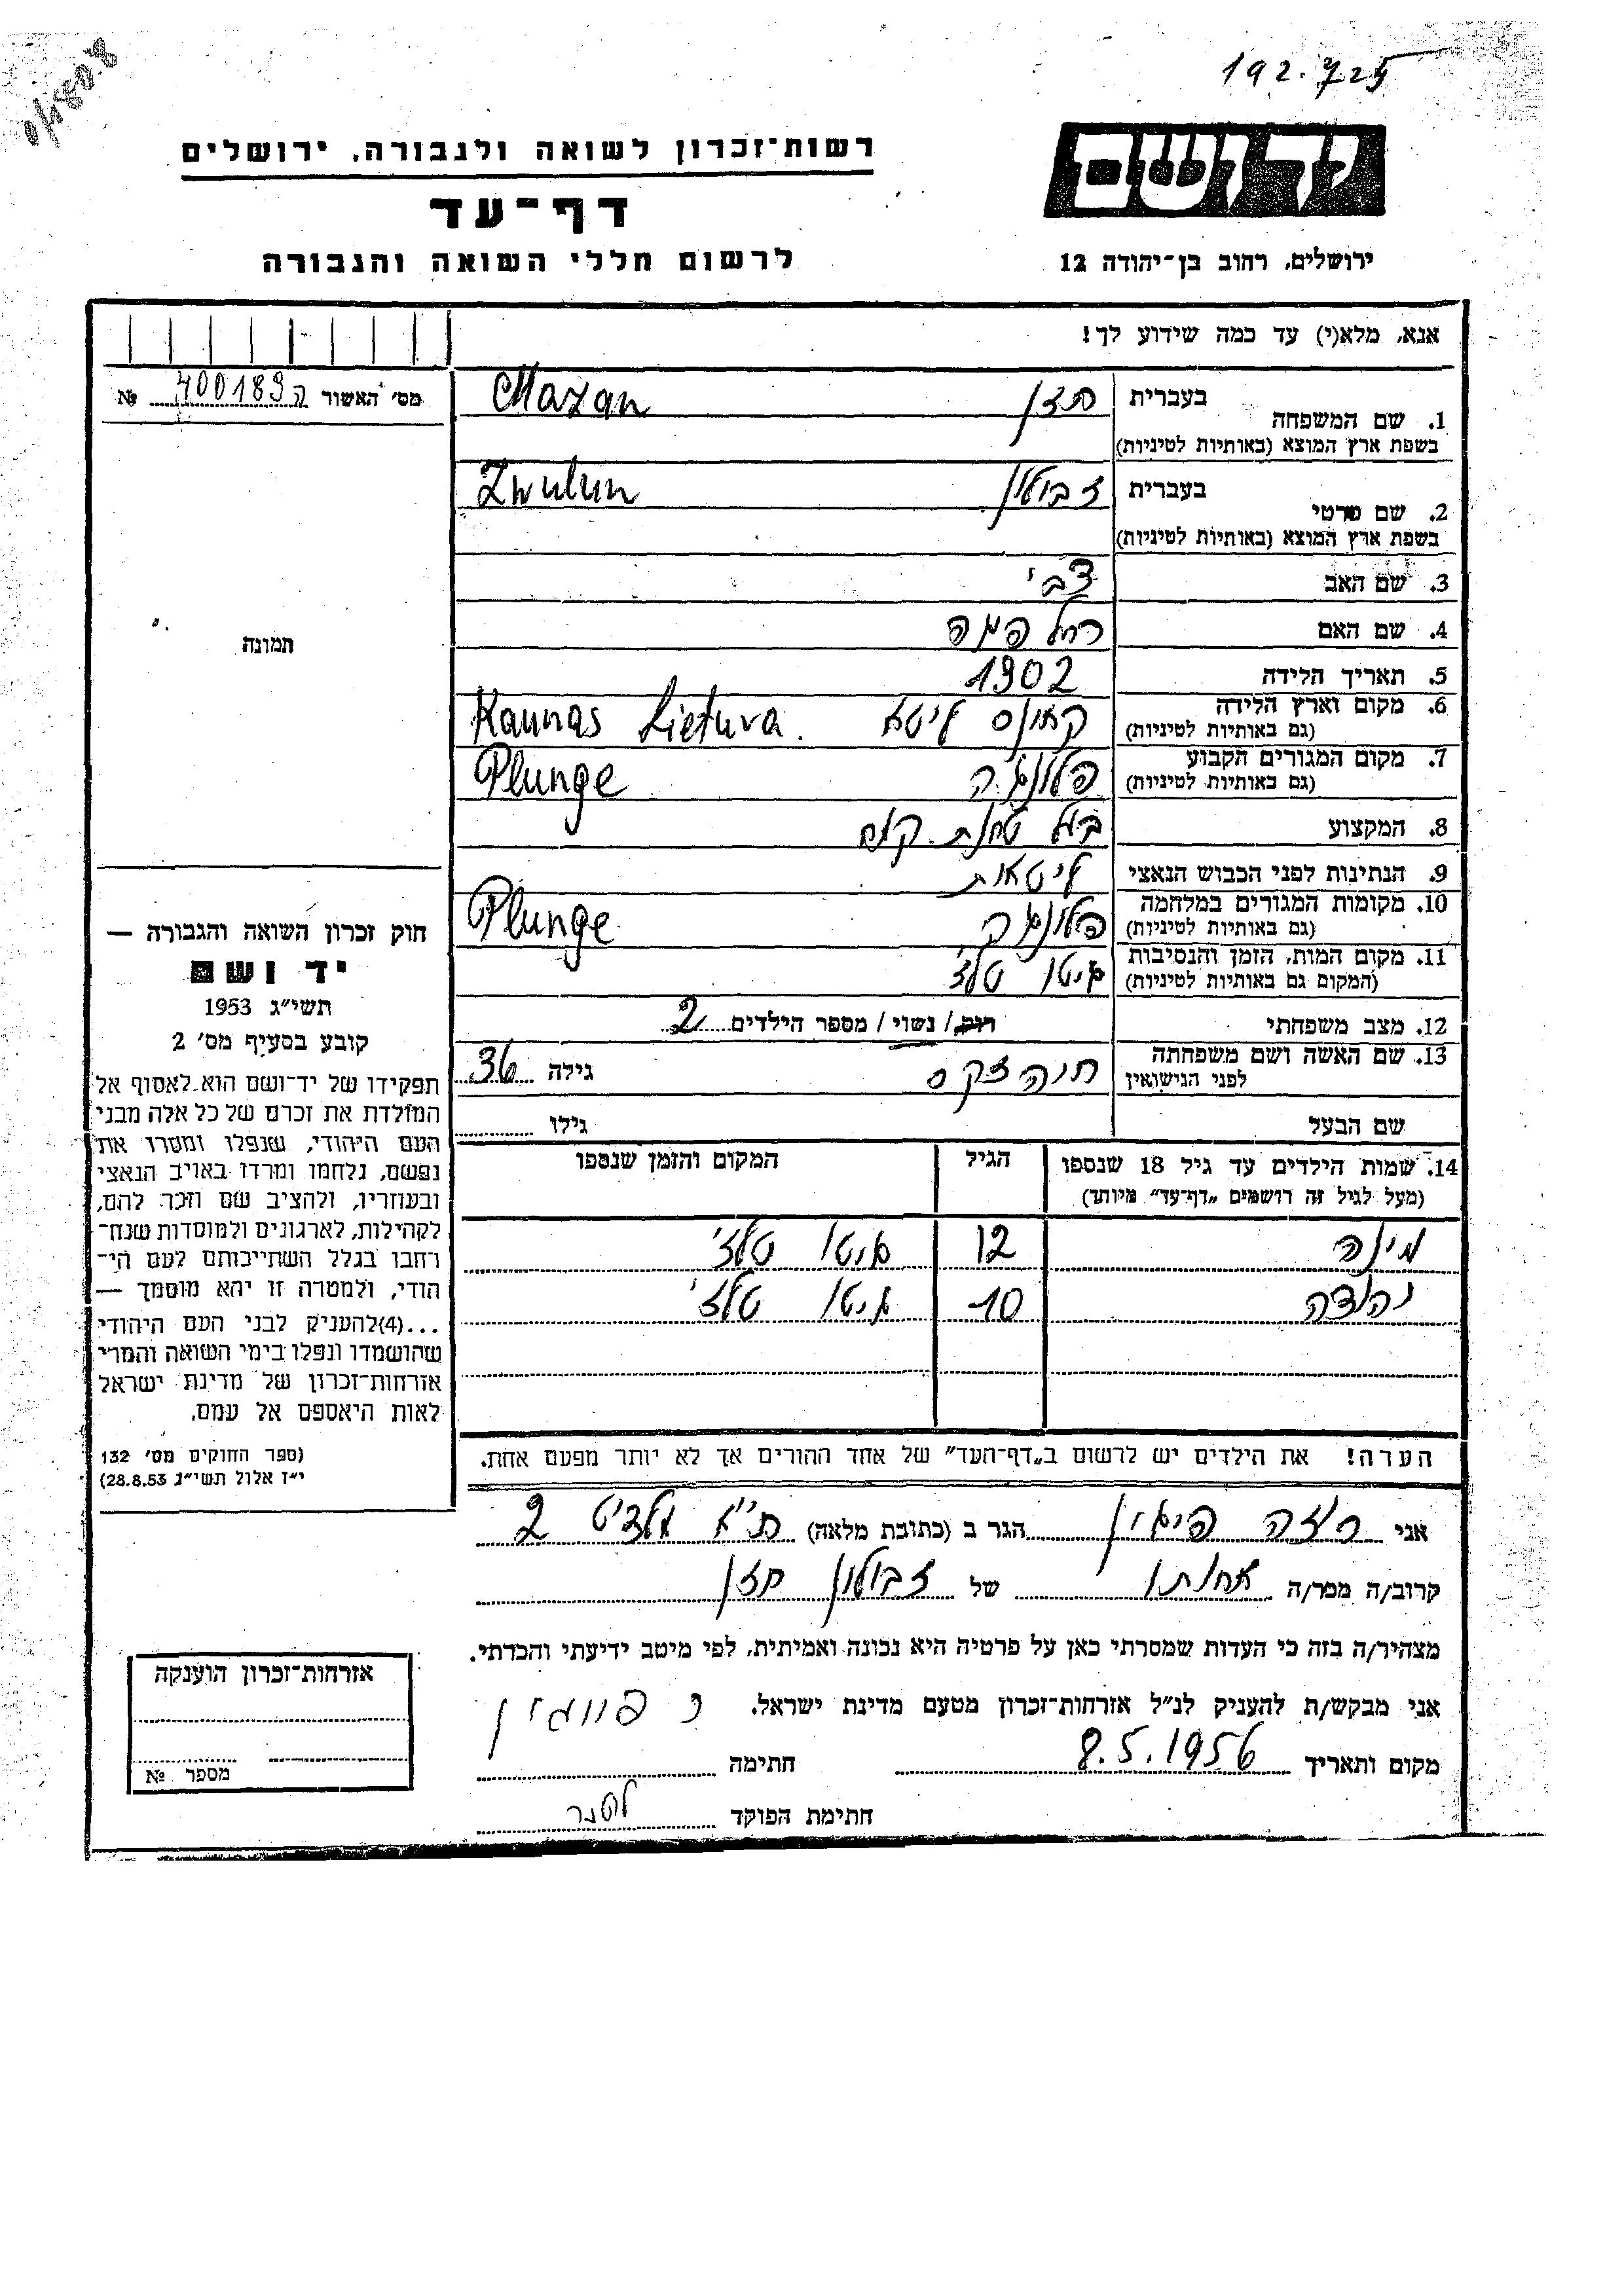 192.725
רשות־זכרון לשואה ולגבורה, ירושלים
דף־עד
לרשום חללי השואה והגבורה
יד ושם
ירושלים, רחוב בן־יהודה 12
אנא, מלא(י) עד כמה שידוע לך!
מס׳ האשור 400183ה №
1. שם המשפחה בעברית חזן Chazan
בשפת ארץ המוצא (באותיות לטיניות)
2. שם פרטי בעברית זבולון Zwulun
בשפת ארץ המוצא (באותיות לטיניות)
3. שם האב צבי
4. שם האם רחל
5. תאריך הלידה 1902
6. מקום וארץ הלידה קאונס ליטא Kaunas Lietuva.
(גם באותיות לטיניות)
7. מקום המגורים הקבוע פלונגה Plunge
(גם באותיות לטיניות)
8. המקצוע בעל טחנת קמח
9. הנתינות לפני הכבוש הנאצי ליטאית
10. מקומות המגורים במלחמה פלונגה Plunge
(גם באותיות לטיניות)
11. מקום המות, הזמן והנסיבות גיטו טלז׳
(המקום גם באותיות לטיניות)
12. מצב משפחתי רווק / נשוי / מספר הילדים 2
13. שם האשה ושם משפחתה חיה זקס גילה 36
לפני הנישואין
שם הבעל גילו
14. שמות הילדים עד גיל 18 שנספו הגיל המקום והזמן שנספו
(מעל לגיל זה רושמים „דף־עד” מיוחד)
מינה 12 גיטו טלז׳
יהודה 10 גיטו טלז׳
הערה! את הילדים יש לרשום ב„דף־העד” של אחד ההורים אך לא יותר מפעם אחת.
תמונה
חוק זכרון השואה והגבורה —
יד ושם
תשי״ג 1953
קובע בסעיף מס׳ 2
תפקידו של יד־ושם הוא לאסוף אל
המולדת את זכרם של כל אלה מבני
העם היהודי, שנפלו ומסרו את
נפשם, נלחמו ומרדו באויב הנאצי
ובעוזריו, ולהציב שם וזכר להם,
לקהילות, לארגונים ולמוסדות שנח־
רחבו בגלל השתייכותם לעם הי־
הודי, ולמטרה זו יהא מוסמך —
...(4)להעניק לבני העם היהודי
שהושמדו ונפלו בימי השואה והמרי
אזרחות־זכרון של מדינת ישראל
לאות היאספם אל עמם.
(ספר החוקים מס׳ 132
י״ז אלול תשי״ג 28.8.53)
אני רוזה הגר ב (כתובת מלאה) ת״א 2
קרוב/ה מכר/ה אחותו של זבולון חזן
מצהיר/ה בזה כי העדות שמסרתי כאן על פרטיה היא נכונה ואמיתית, לפי מיטב ידיעתי והכרתי.
אני מבקש/ת להעניק לנ״ל אזרחות־זכרון מטעם מדינת ישראל.
מקום ותאריך 8.5.1956 חתימה
חתימת הפוקד
אזרחות־זכרון הוענקה
מספר №